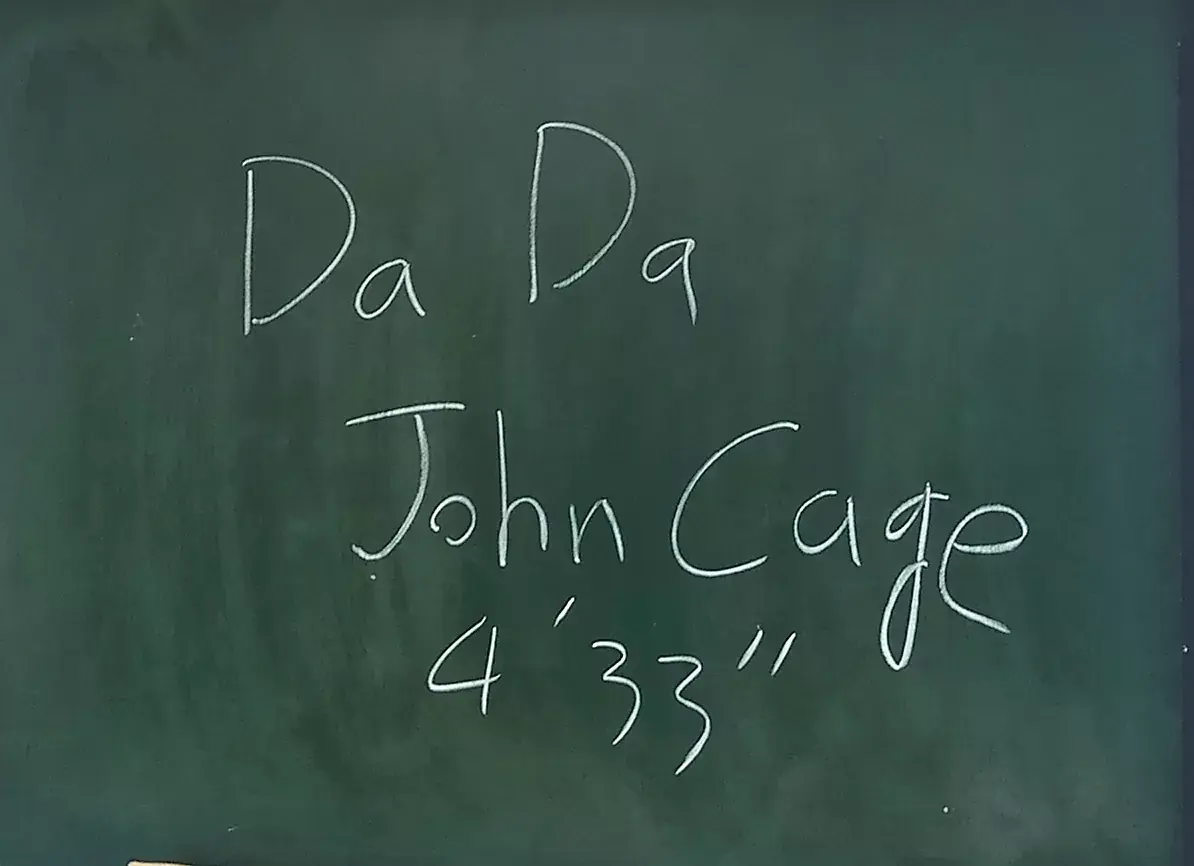 Da Da
John Cage
4'33"